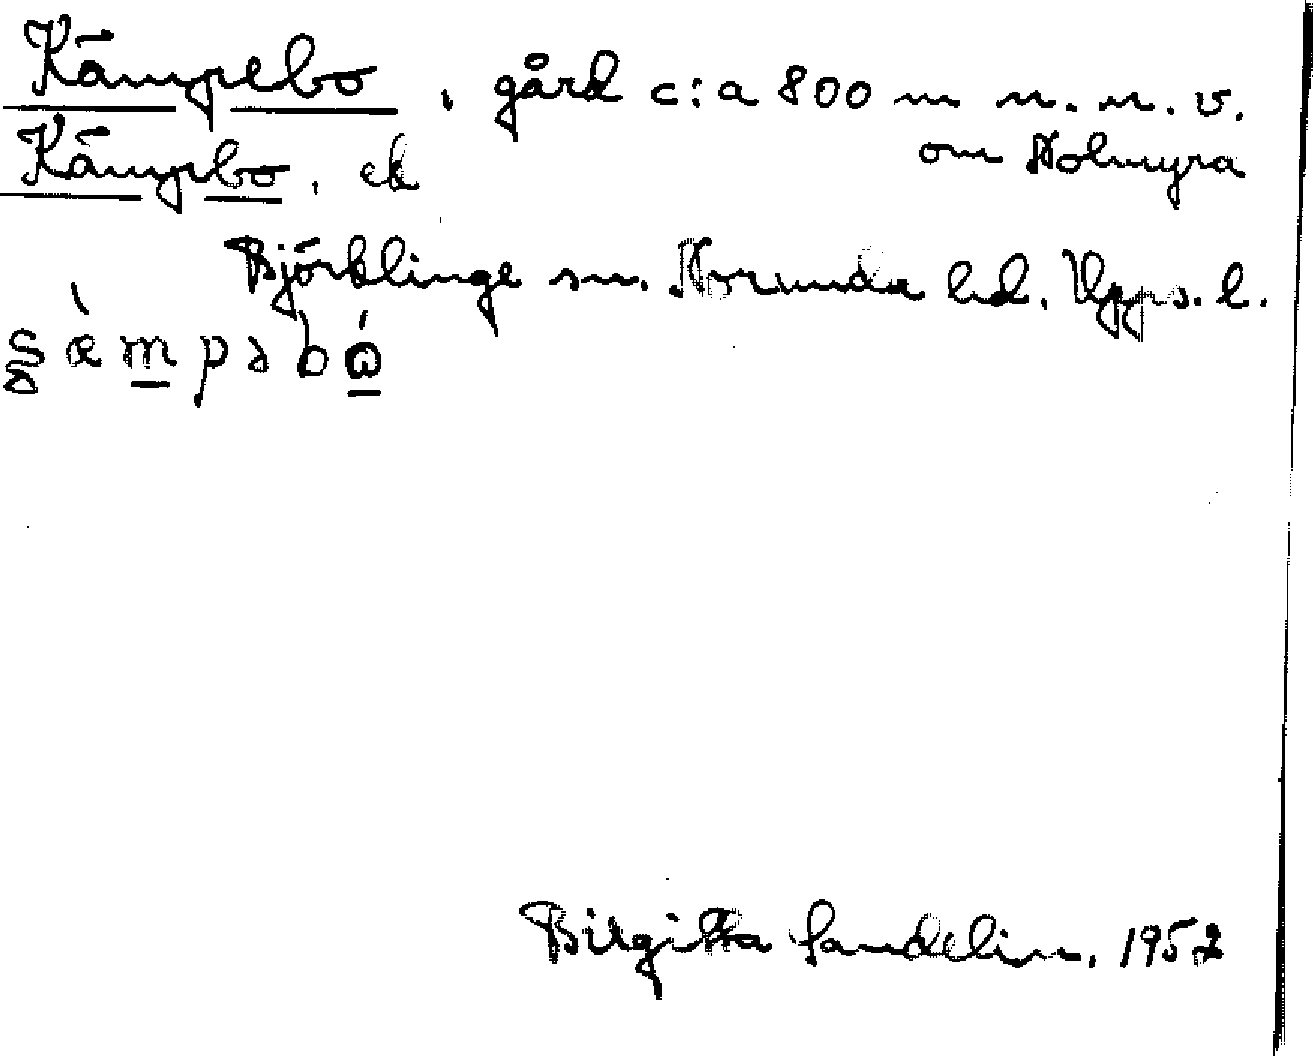 Kämpebo, gård c:a 800 m n. n. v.
om Nolmyra
Kämpbo, ek
Björklinge sn. Norunda hd. Upps. l.
Birgitta Sandelin. 1952